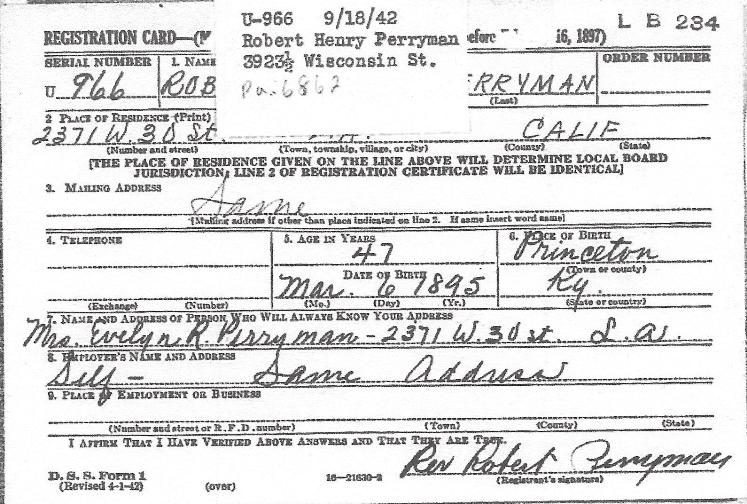 U-966 9/18/42
Robert Henry Perryman
3923½ Wisconsin St.
Pa. 6862
L B 234
REGISTRATION CARD—(M
efore 16, 1897)
SERIAL NUMBER 1. NAME ORDER NUMBER
U 966 ROB ERRYMAN
(Last)
2 PLACE OF RESIDENCE (Print)
2371 W. 30 St. CALIF
(Number and street) (Town, township, village, or city) (County) (State)
[THE PLACE OF RESIDENCE GIVEN ON THE LINE ABOVE WILL DETERMINE LOCAL BOARD
JURISDICTION; LINE 2 OF REGISTRATION CERTIFICATE WILL BE IDENTICAL]
3. MAILING ADDRESS
Same
[Mailing address if other than place indicated on line 2. If same insert word same]
4. TELEPHONE 5. AGE IN YEARS 6. PLACE OF BIRTH
47 Princeton
DATE OF BIRTH (Town or county)
Mar. 6 1895 Ky.
(Exchange) (Number) (Mo.) (Day) (Yr.) (State or country)
7. NAME AND ADDRESS OF PERSON WHO WILL ALWAYS KNOW YOUR ADDRESS
Mrs. Evelyn R. Perryman - 2371 W. 30 St. L.A.
8. EMPLOYER'S NAME AND ADDRESS
Self - Same Address
9. PLACE OF EMPLOYMENT OR BUSINESS
(Number and street or R. F. D. number) (Town) (County) (State)
I AFFIRM THAT I HAVE VERIFIED ABOVE ANSWERS AND THAT THEY ARE TRUE.
Rev Robert Perryman
D. S. S. Form 1 16—21630-2 (Registrant's signature)
(Revised 4-1-42) (over)